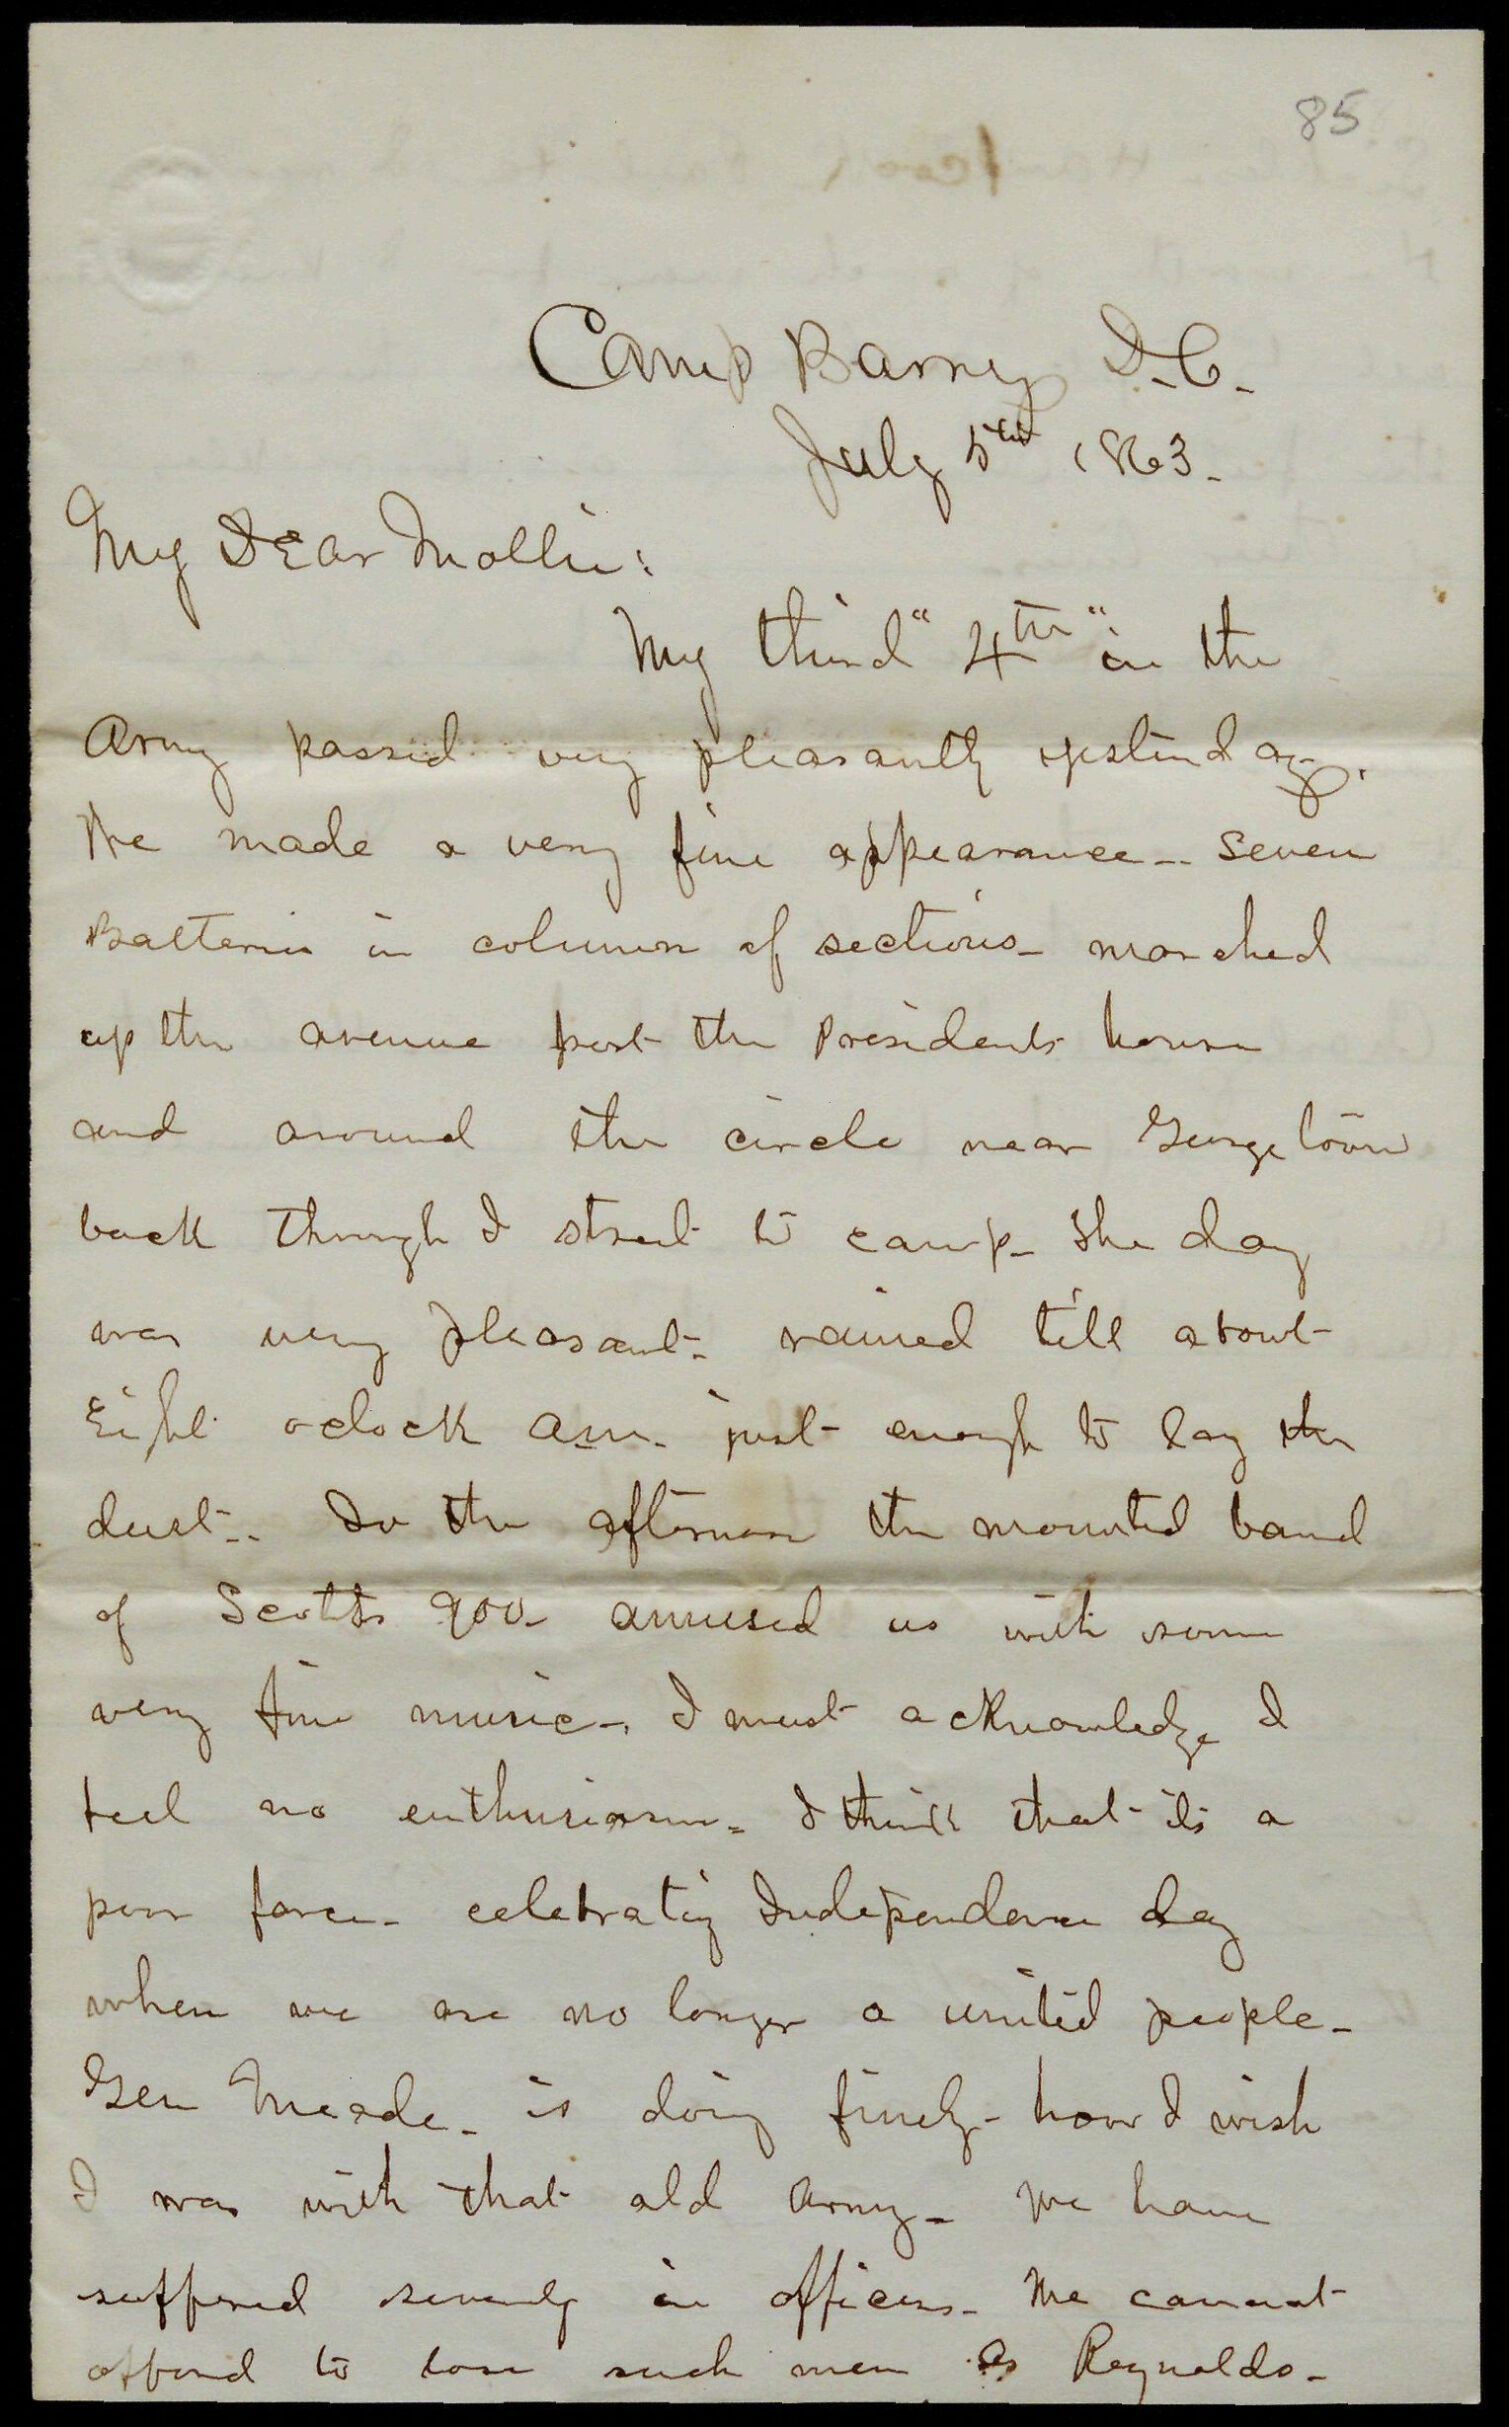 85
Camp Barry D.C.
July 5th 1863.
My Dear Mollie:
My third "4th" in the
Army passed very pleasantly yesterday.
We made a very fine appearance - seven
Batteries in column of sections - marched
up the avenue past the Presidents house
and around the circle near Georgetown
back through I street to camp - The day
was very pleasant - rained till about
Eight oclock am - just enough to lay the
dust - In the afternoon the mounted band
of Scotts 900 - amused us with some
very fine music - I must acknowledge I
feel no enthusiasm - I think that its a
poor farce - celebrating Independence day
when we are no longer a united people -
Gen Meade - is doing finely - how I wish
I was with that old Army - We have
suffered severely in officers - We cannot
afford to lose such men as Reynolds -